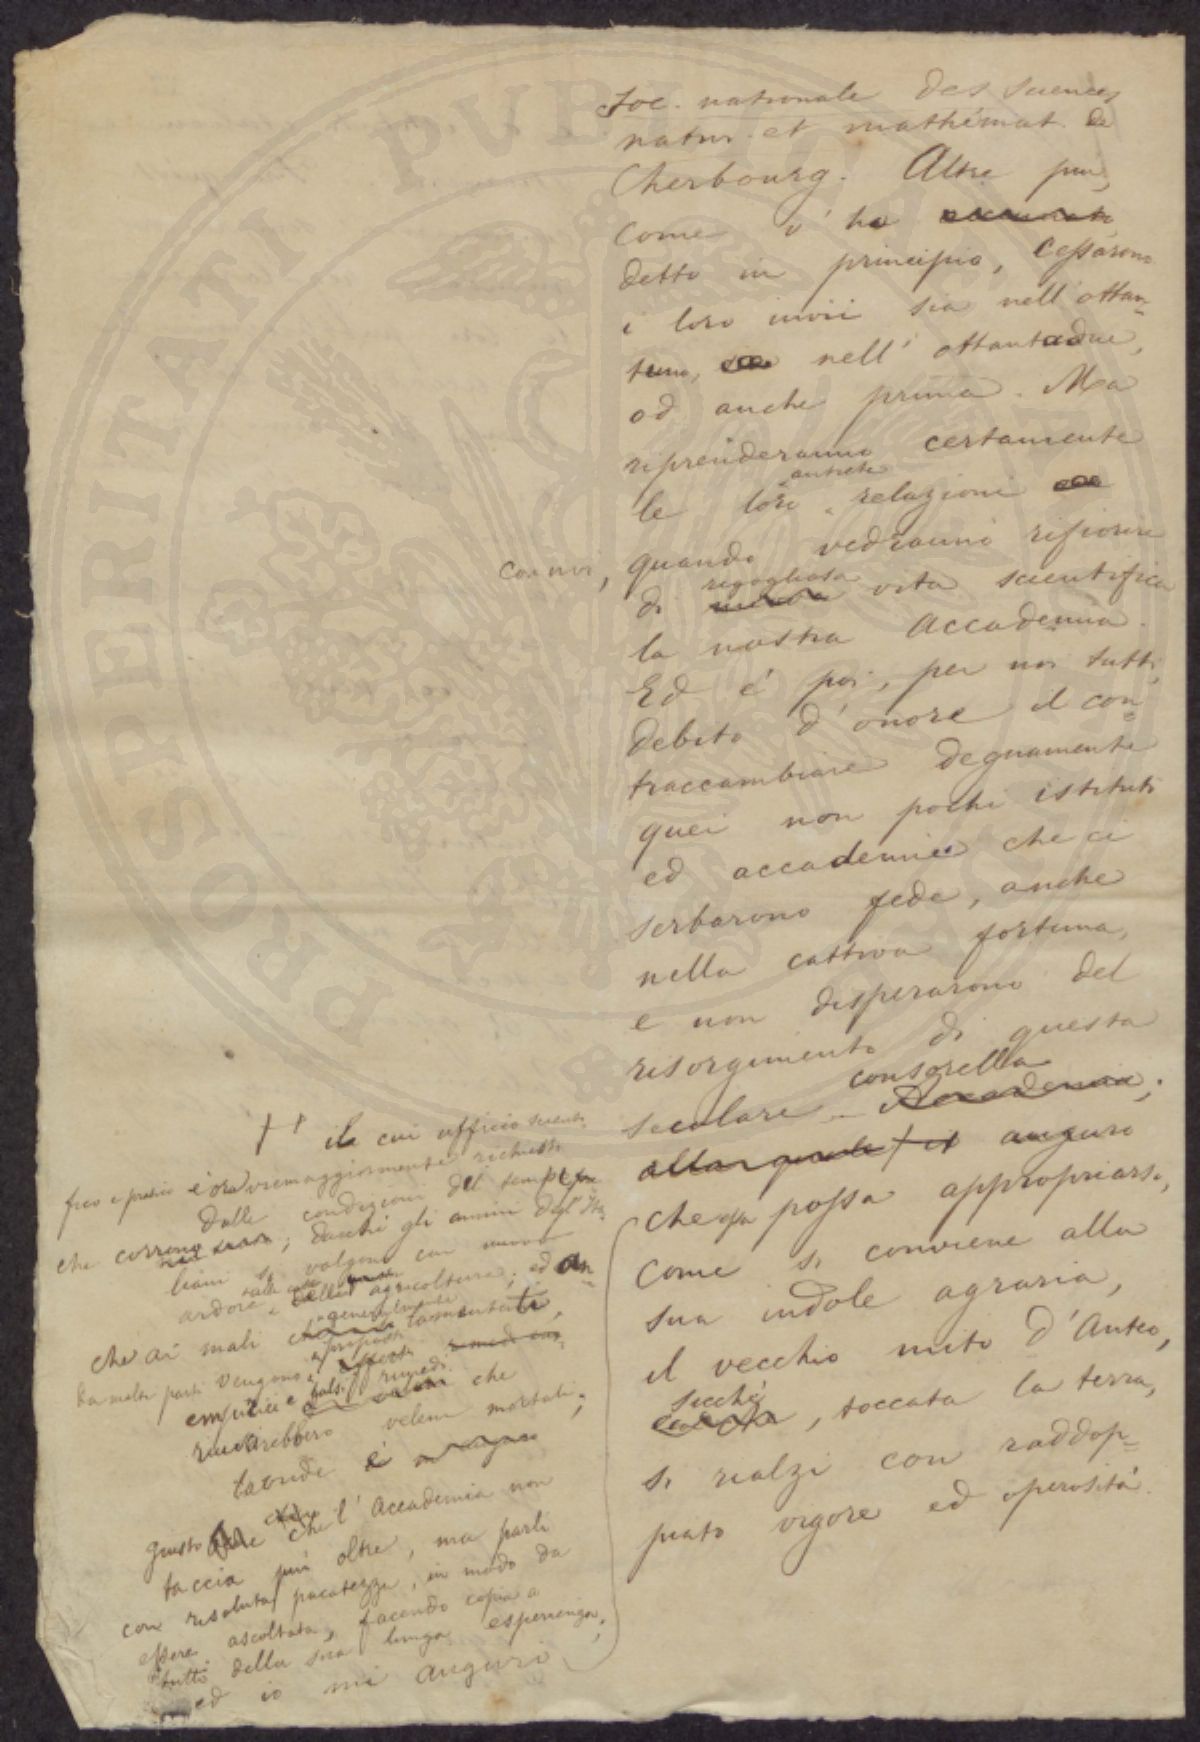 Soc. nationale des sciences
natur. et mathémat. de
Cherbourg. Altre poi,
come v'ho
detto in principio, cessarono
i loro invii sia nell'ottan-
tuno, nell'ottantadue,
od anche prima. Ma
riprenderanno certamente
antiche
le loro relazioni
con noi, quando vedranno rifiorire
rigogliosa
di vita scientifica
la nostra Accademia.
Ed è poi, per noi tutti,
debito d'onore il con-
traccambiare degnamente
quei non pochi istituti
ed accademie che ci
serbarono fede, anche
nella cattiva fortuna,
e non disperarono del
risorgimento di questa
consorella
secolare Accademia;
alla quale il auguro
che possa appropriarsi,
come si conviene alla
sua indole agraria,
il vecchio mito d'Anteo,
sicchè
, toccata la terra,
si rialzi con raddop-
piato vigore ed operosità.
il cui ufficio scienti-
fico e pratico è ora viemaggiormente richiesto
dalle condizioni del tempo
che corrono; dacchè gli animi degl'Ita-
liani si volgono con nuovo
ardore agricoltura; ed an-
generalmente
che ai mali lamentati,
proposti
da molte parti vengono offerti
empirici e falsi rimedi
riuscirebbero veleni mortali;
laonde è
giusto che l'Accademia non
taccia più oltre, ma parli
con risoluta pacatezza, in modo da
essere ascoltata, facendo copia a
tutti della sua lunga esperienza;
ed io mi auguri